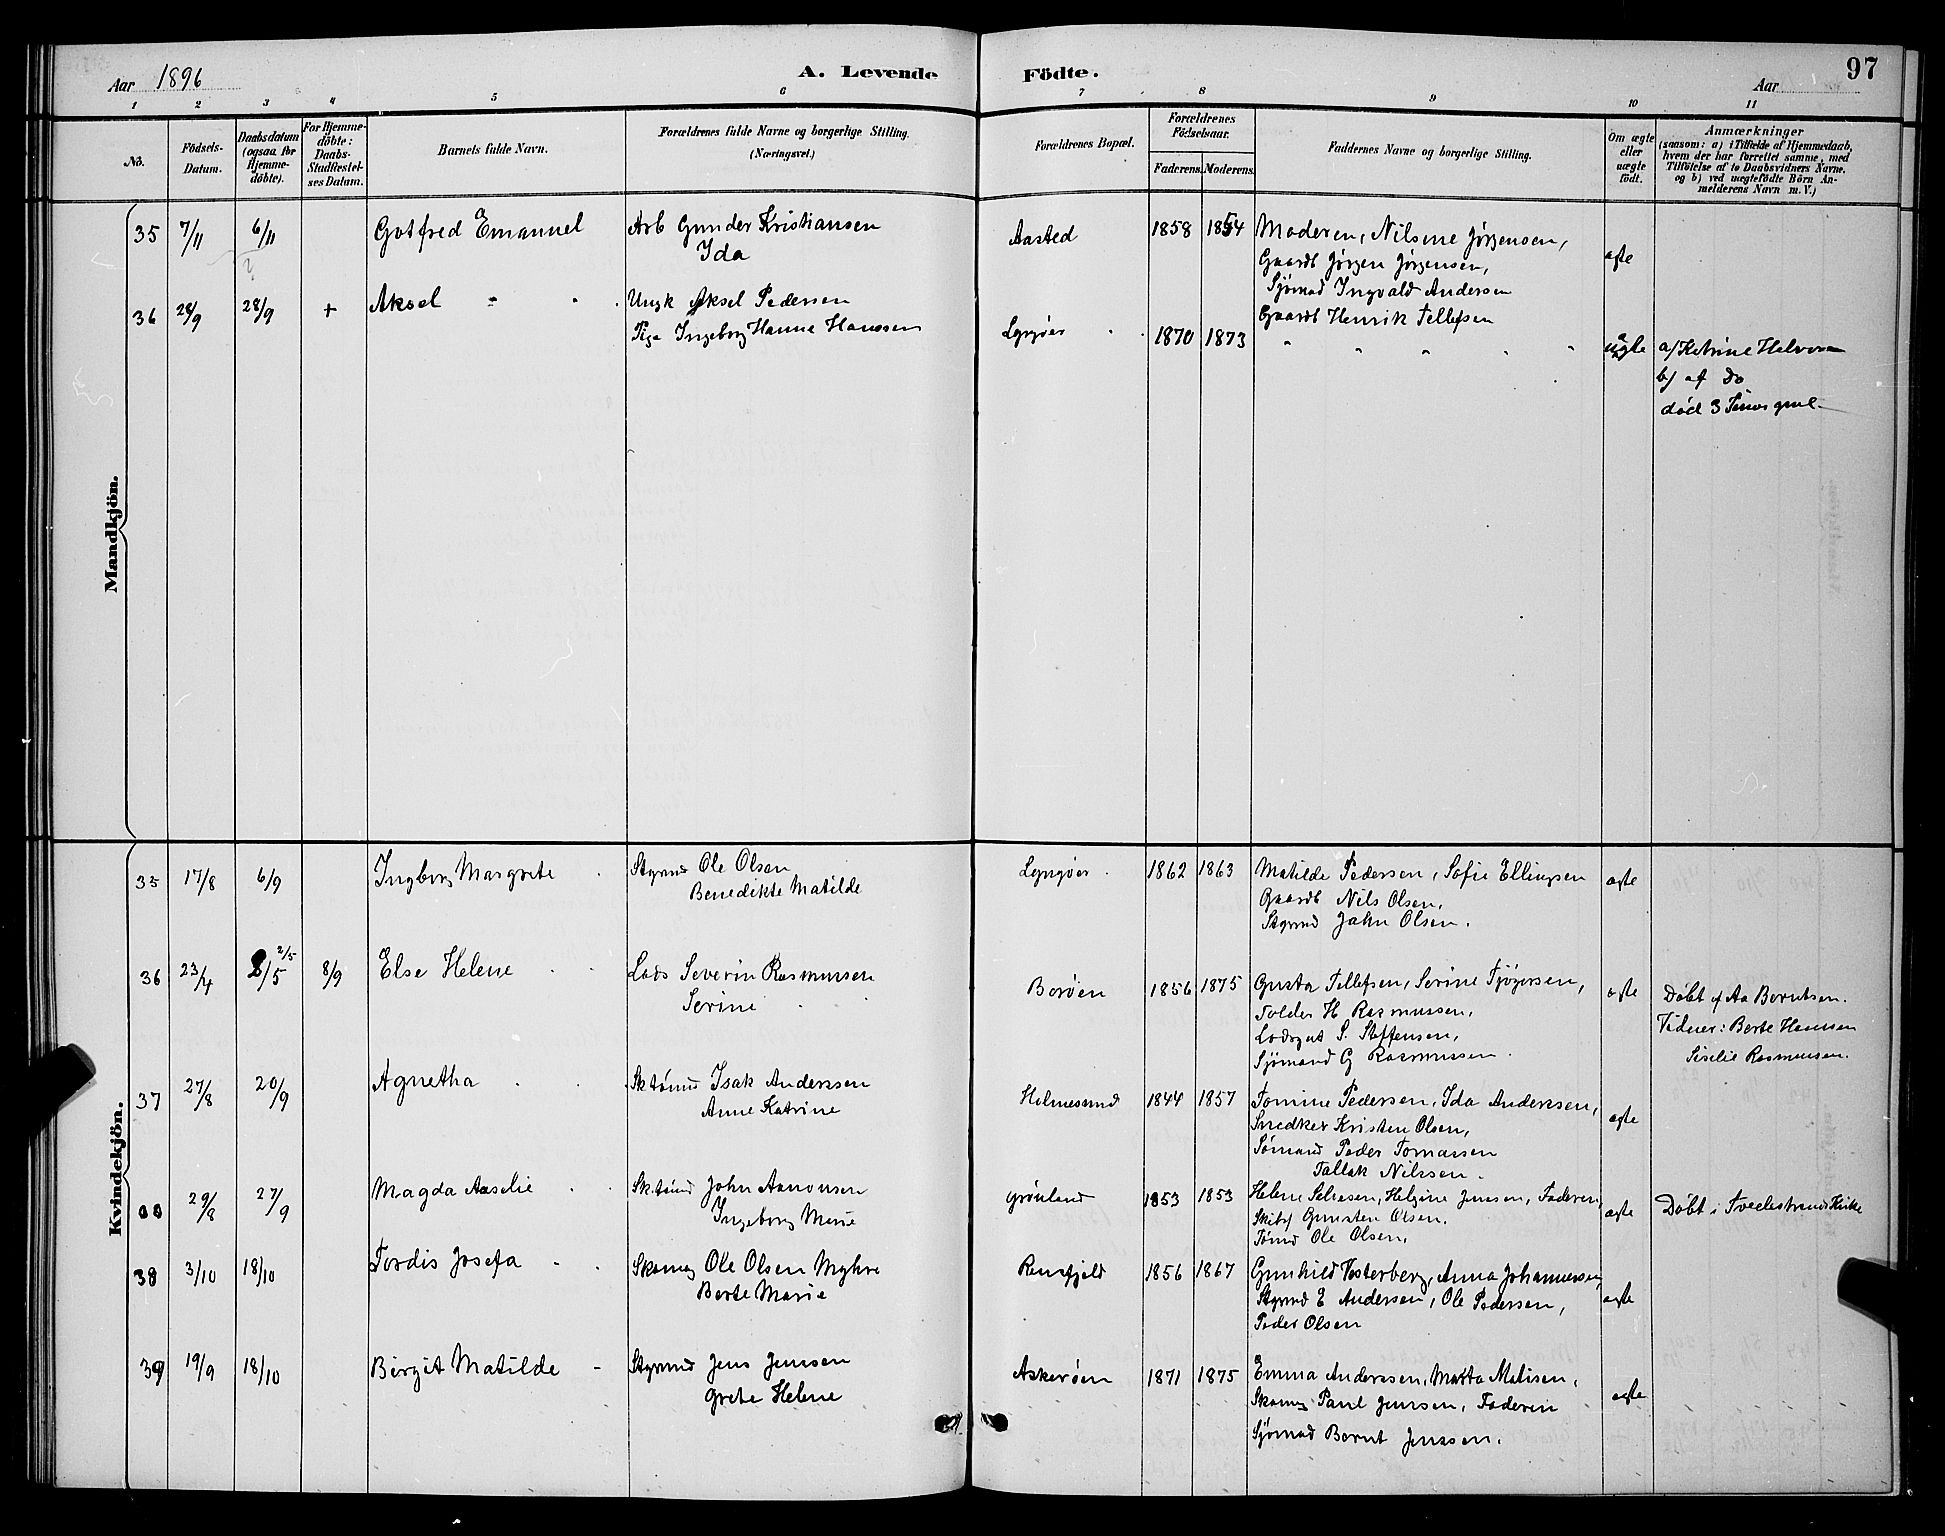 Aar 1896
A. Levende Födte.
Aar
97
1 2 3 4 5 6 7 8 9 10 11
No.
Födsels-Datum.
Daabsdatum (ogsaa for Hjemmedöbte).
For Hjemmedöbte: Daabs-Stadfæstelses Datum.
Barnets fulde Navn.
Forældrenes fulde Navne og borgerlige Stilling. (Næringsvei.)
Forældrenes Bopæl.
Forældrenes Födselsaar.
Faderens. Moderens.
Faddernes Navne og borgerlige Stilling.
Om ægte eller uægte födt.
Anmærkninger (saasom: a) i Tilfælde af Hjemmedaab, hvem der har forrettet samme, med Tilföielse af to Daabsvidners Navne, og b) ved uægtefödte Börn Anmelderens Navn m. V.)
Mandkjön.
35 7/11 6/11 Gotfred Emanuel Arb Gunder Kristiansen Aasted 1858 1854 Moderen, Nilsine Jörgensen,
Ida
Gaardb Jörgen Jörgensen, ægte
Sjömad Ingvald Andersen
Gaardb Henrik Tellefsen
36 28/9 28/9 + Aksel Ungk Aksel Pedersen
Pige Ingeborg Hanne Hanssen Lyngöer 1870 1873 " " " " " uægte a/ Katrine Helvor
b/ af Do
död 3 Timer gml
Kvindekjön.
35 17/8 6/9 Ingborg Margrete Styrmd Ole Olsen Lyngöer 1862 1863 Matilde Pedersen, Sofie Ellingsen ægte
Benedikte Matilde
Gaardb Nils Olsen,
Styrmd John Olsen.
36 23/4 2/5 8/9 Else Helene Lods Severin Rasmussen Boröen 1856 1875 Gusta Tellefsen, Serine Tjögersen, ægte Döbt af Aa Berntsen.
Serine
Tolder H Rasmussen, Vidner: Berte Hanssen
Lodsgut S. Steffensen, Siselie Rasmussen.
Sjömand G Rasmussen
37 27/8 20/9 Agnetha Sktömd Isak Anderssen Holmesund 1844 1857 Tomine Pedersen, Ida Anderssen, ægte
Anne Katrine
Snedker Kristen Olsen,
Tömand Peder Tomassen
Tallak Nilssen.
29/8 27/9 Magda Aaselie Sktömd John Aanonsen Grönland 1853 1853 Helene Jenssen, Faderen, ægte Döbt i Tvedestrands Kirke
Ingeborg Marie
Skibsf Gunsten Olsen,
Tömd Ole Olsen,
38 3/10 18/10 Tordis Josefa Skomag Ole Olsen Myhre Rensfjeld 1856 1867 Gunhild Vesterberg, Anna Johannessen, ægte
Berte Marie
Styrmd E Andersen, Ole Pedersen,
Peder Olsen
39 19/9 18/10 Birgit Matilde Styrmd Jens Jenssen Askeröen 1871 1875 Emma Anderssen, Marta Matisen, ægte
Grete Helene
Skomag Paul Jenssen, Faderen
Sjömad Bernt Jenssen.